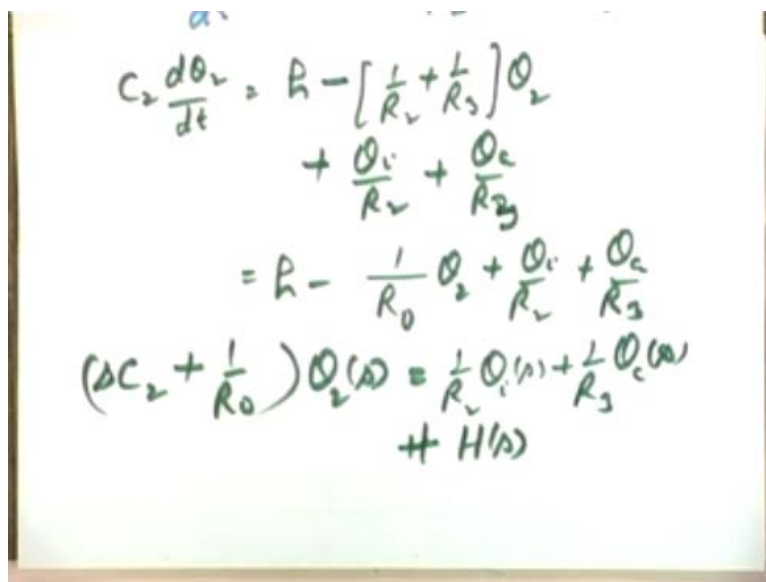 C₂ dθ₂/dt = h - [1/R₂ + 1/R₃]θ₂
+ θᵢ/R₂ + θc/R₃
= h - 1/R₀ θ₂ + θᵢ/R₂ + θc/R₃
(sC₂ + 1/R₀)θ₂(s) = 1/R₂ θᵢ(s) + 1/R₃ θc(s)
+ H(s)